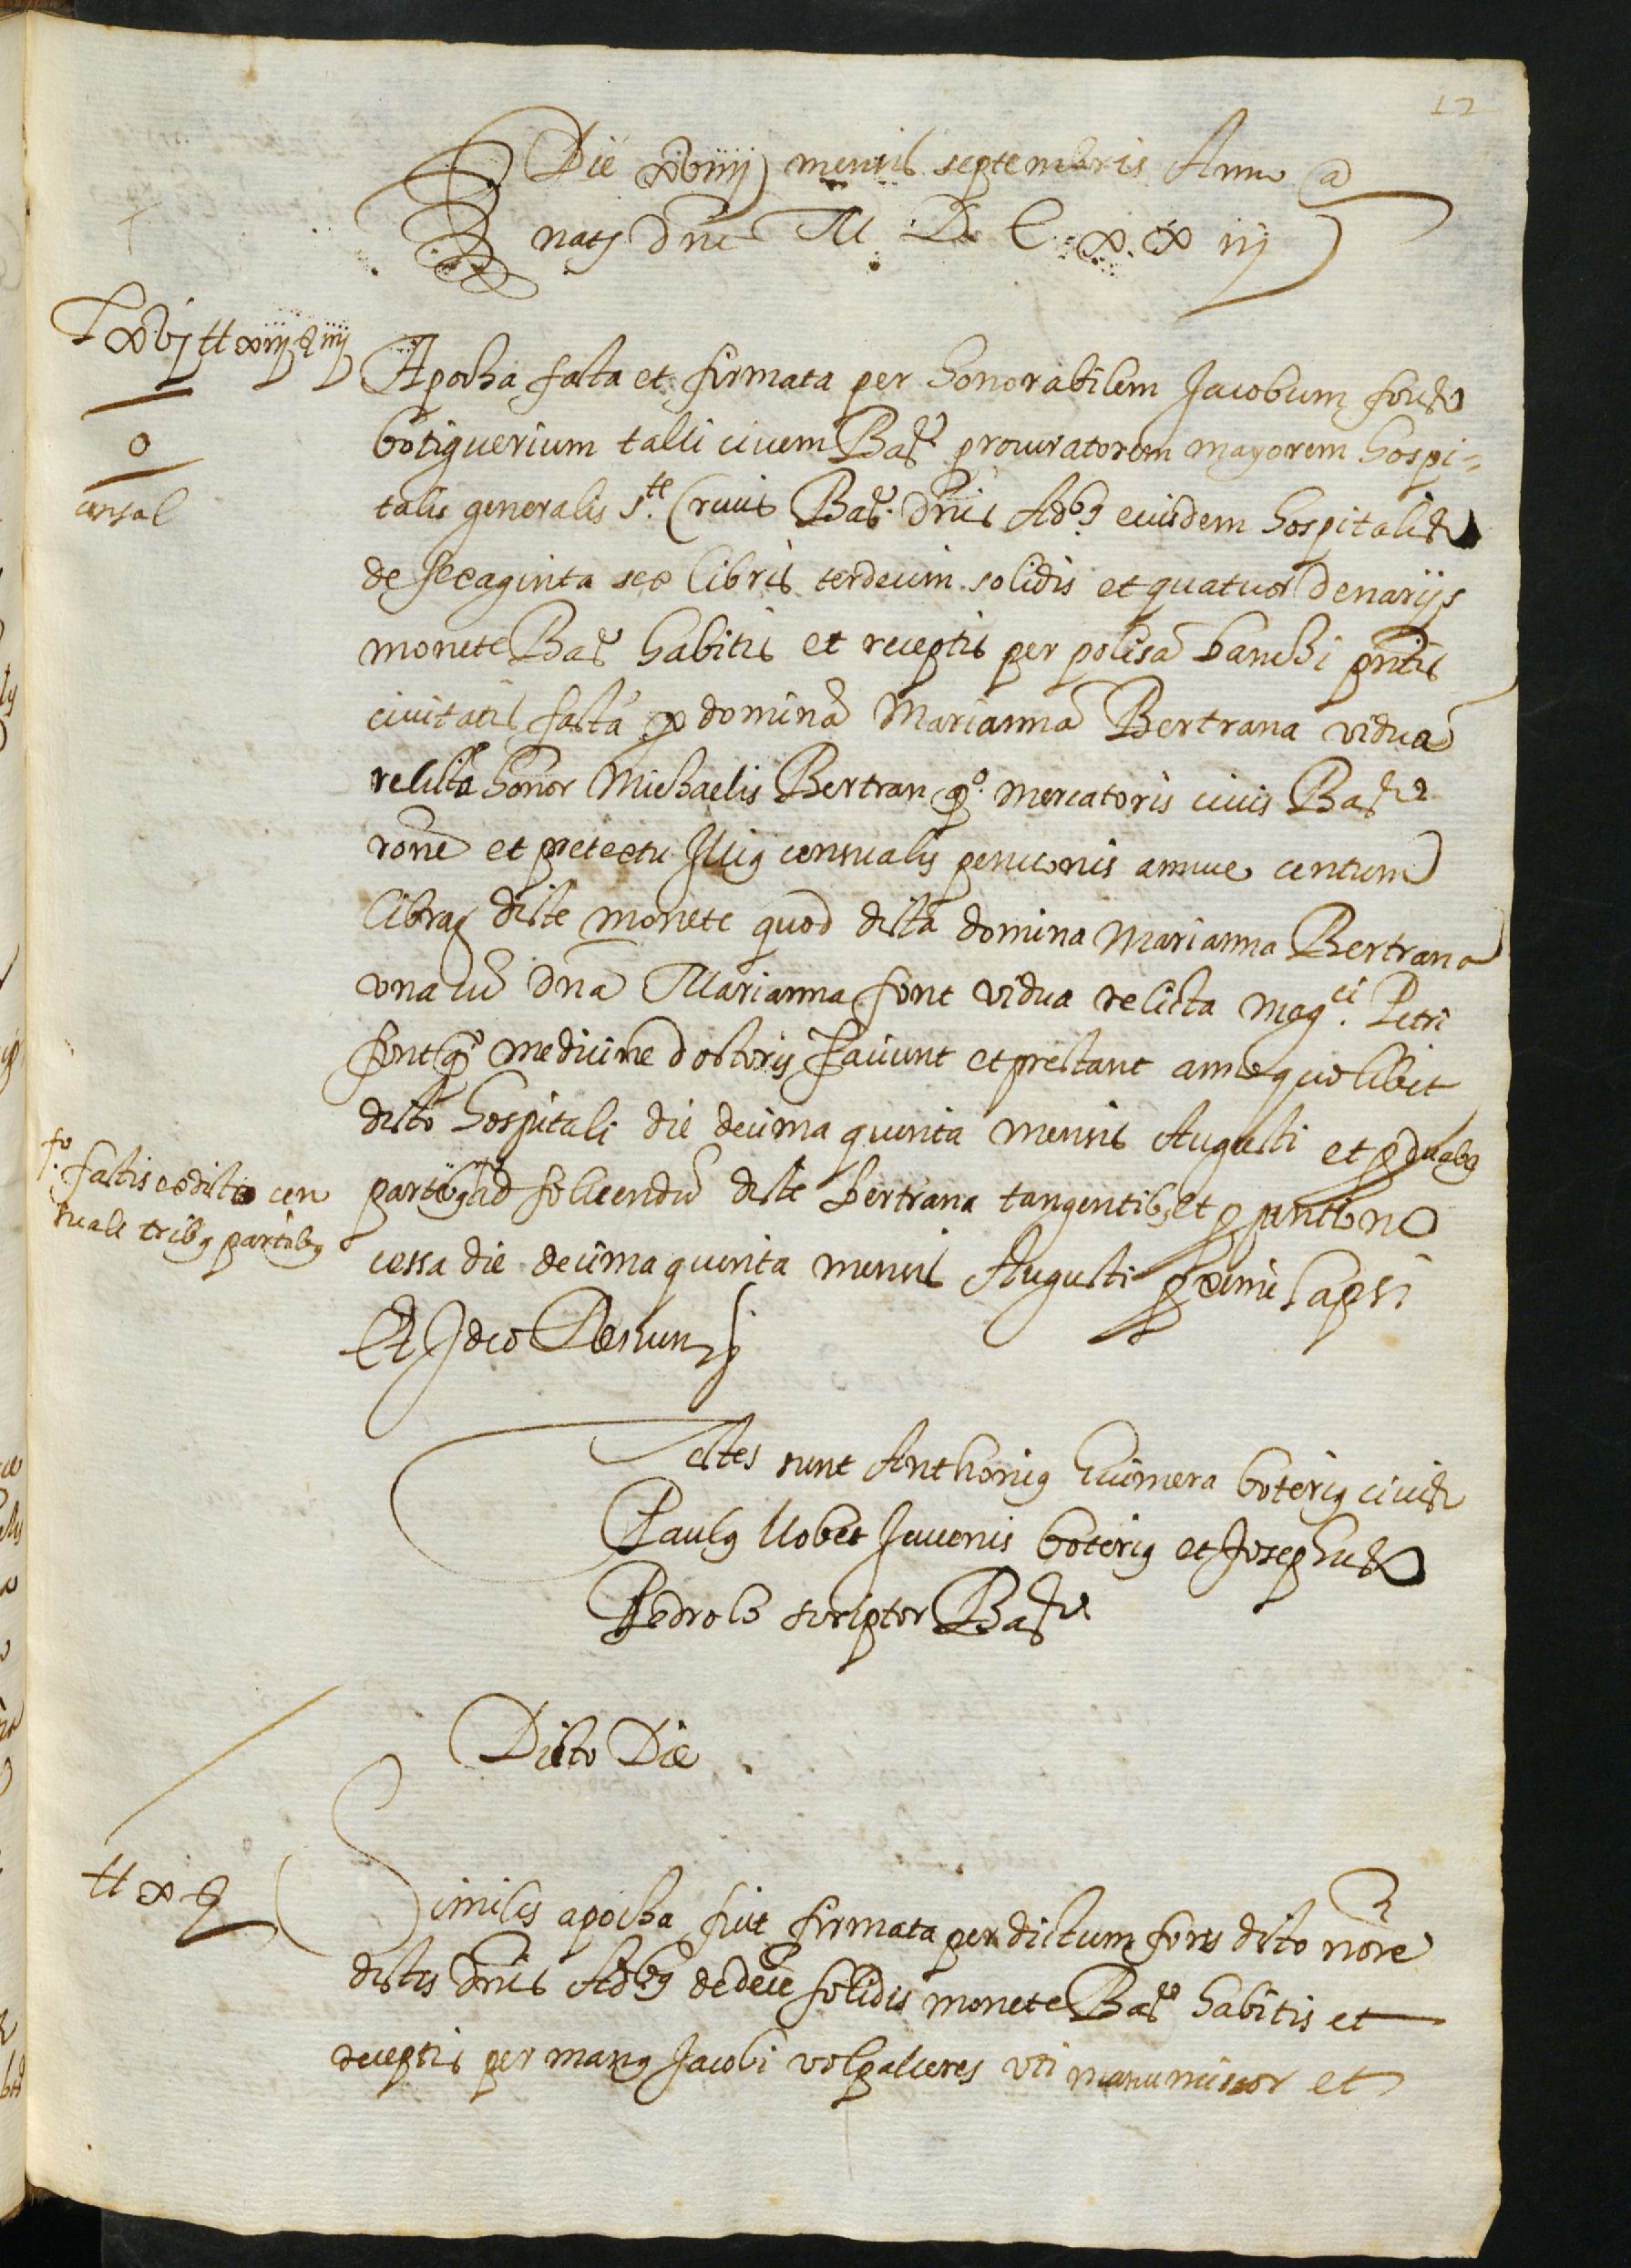 12
Die xviiij mensis septembris Anno a
natiẽ dñi M. D. C. x. x iij
Lxvj ₶ xiij ẞ iiij
o
censal
Apocha facta et firmata per honorabilem Jacobum fons
botiguerium talli civem Barẽ procuratorem mayorem hospi=
talis generalis S.te Crucis Barẽ dñis Adb9 eiusdem hospitalis
de sexaginta sex libris terdecim solidis et quatuor denarijs
monete Barẽ habitis et receptis per polisã banchi pñtis
civitatis factã p dominã Mariannã Bertrana viduã
relictã honor Michaelis Bertran qº. mercatoris civis Barẽ
rone et pretextu Illig censualis pencionis annue centum
librag dicte monete quod dicta domina Marianna Bertrana
una cũ dña Marianna font vidua relicta magci. Petri
font qº medicine doctoris faciunt et prestant anno quolibet
dicto hospitali die decima quinta mensis Augusti et p duab9
partib9 ad solvendũ dicte bertrana tangentib9 et p pentione
cessa die decima quinta mensis Augusti pxime lapsi
Et Ideo Renun
fº. factis ex dicto cen
suale trib9 partib9
Testes sunt Anthoni9 Guimera boteri9 civis
Paul9 llobet Juvenis boteri9 et Josephus
Pedrolo scriptor Barẽ
Dicto Die
₶ x ẞ
Similis apocha fuit firmata per dictum fons dicto nõre
dictis dñis Adb9 de decẽ solidis monete Barẽ habitis et
receptis per man9 Jacobi volpalleres uti manumissor et